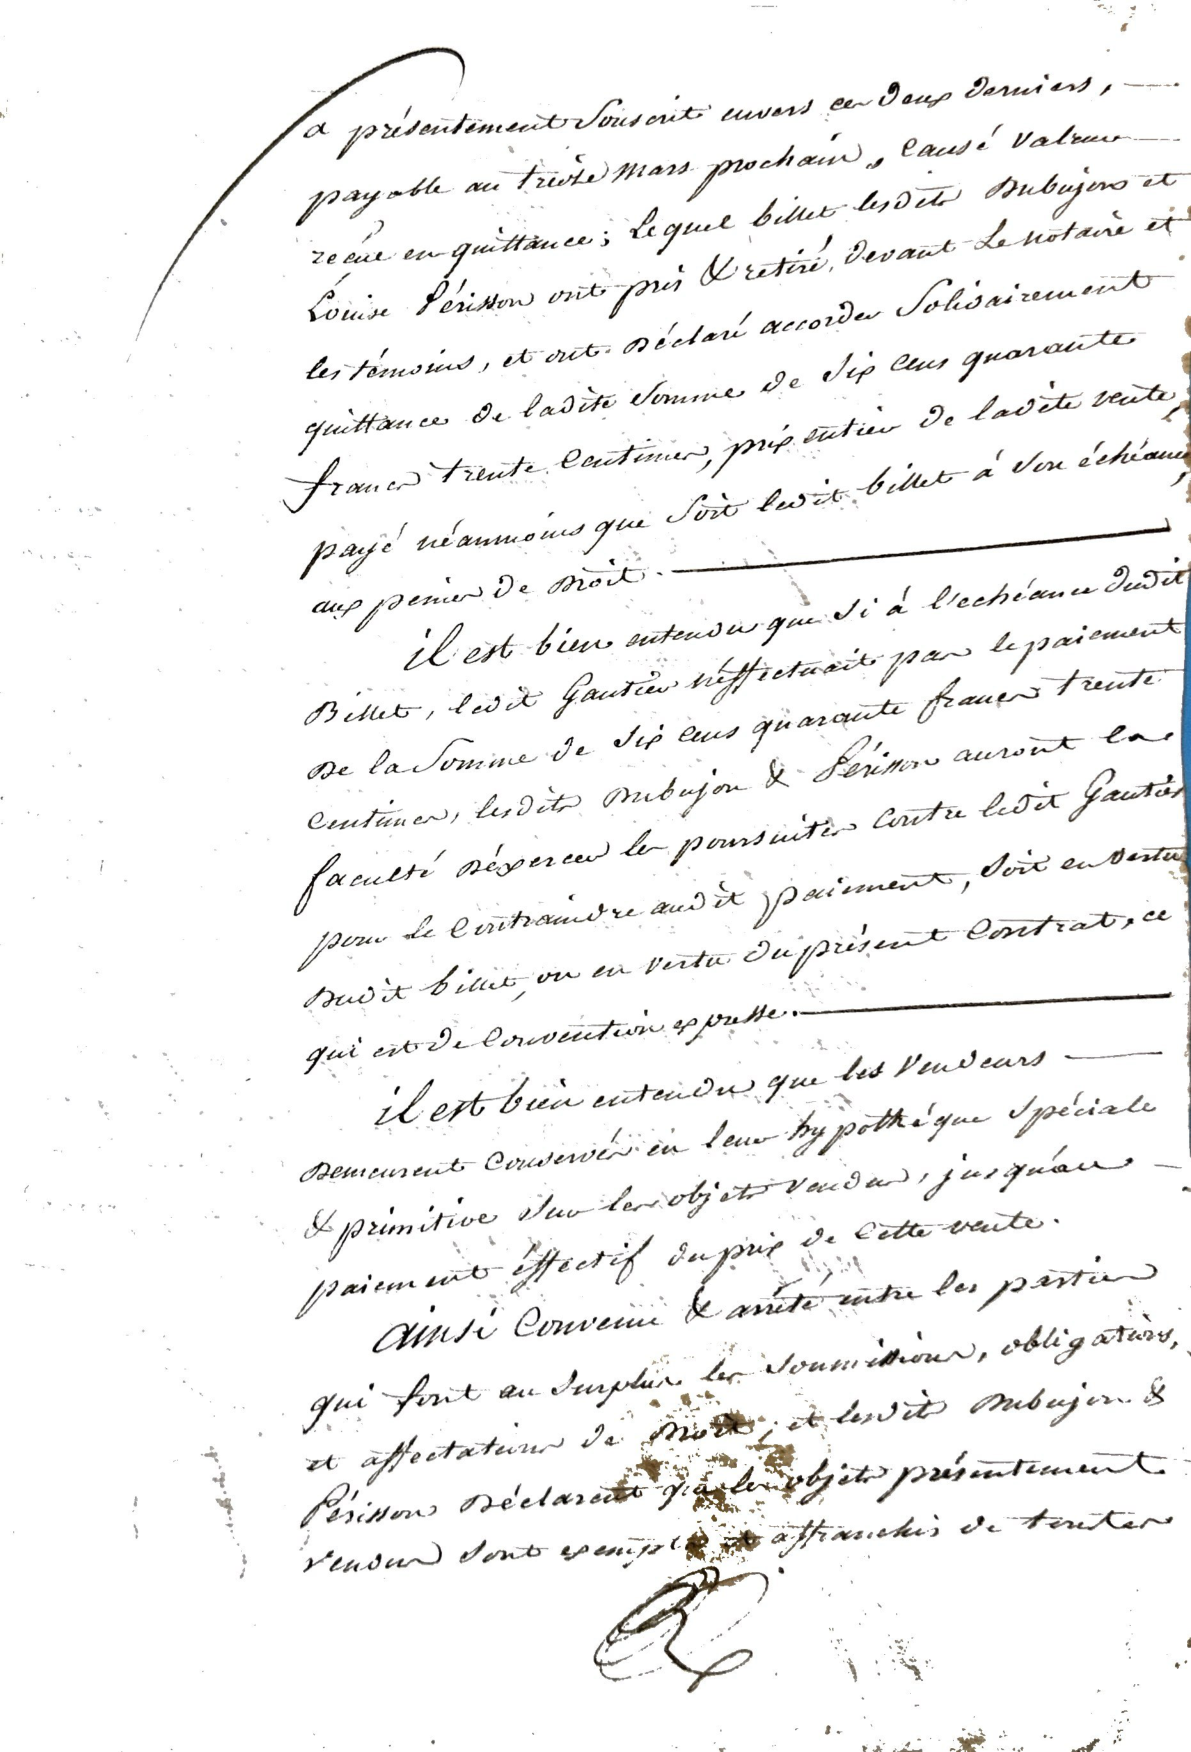 a présentement Souscrit envers ces deux derniers,
payable au treize mars prochain, Causé valeur
reçue en quittance; Lequel billet lesdits Dubujon et
Louise Périsson ont pris & retiré, devant Le notaire et
les témoins, et ont Déclaré accorder Solidairement
quittance de ladite Somme de Six Cens quarante
francs trente Centimes, prix entier de ladite vente,
payé néanmoins que Soit ledit billet à Son échéance,
aux peines de Droit.
il est bien entendu que Si à l'echéance dudit
Billet, ledit Gautier n'éffectuait pas le paiement
De la Somme de Six Cens quarante francs trente
Centimes, lesdits Dubujon & Périsson auront la
faculté D'éxercer les poursuites Contre ledit Gautier
pour le Contraindre audit paiement, Soit en vertu
Dudit billet, ou en vertu du présent Contrat, ce
qui est de Convention expresse.
il est bien entendu que les Vendeurs
Demeurent Conservés en leur hypothéque Spéciale
& primitive Sur les objets vendus, jusqu'au
paiement éffectif du prix de Cette vente.
Ainsi Convenu & arrêté entre les parties
qui font au Surplus les Soumissions, obligations,
et affectations de Droit; et lesdits Dubujon &
Périsson Déclarent que les objets présentement
vendus Sont exempts et affranchis de toutes